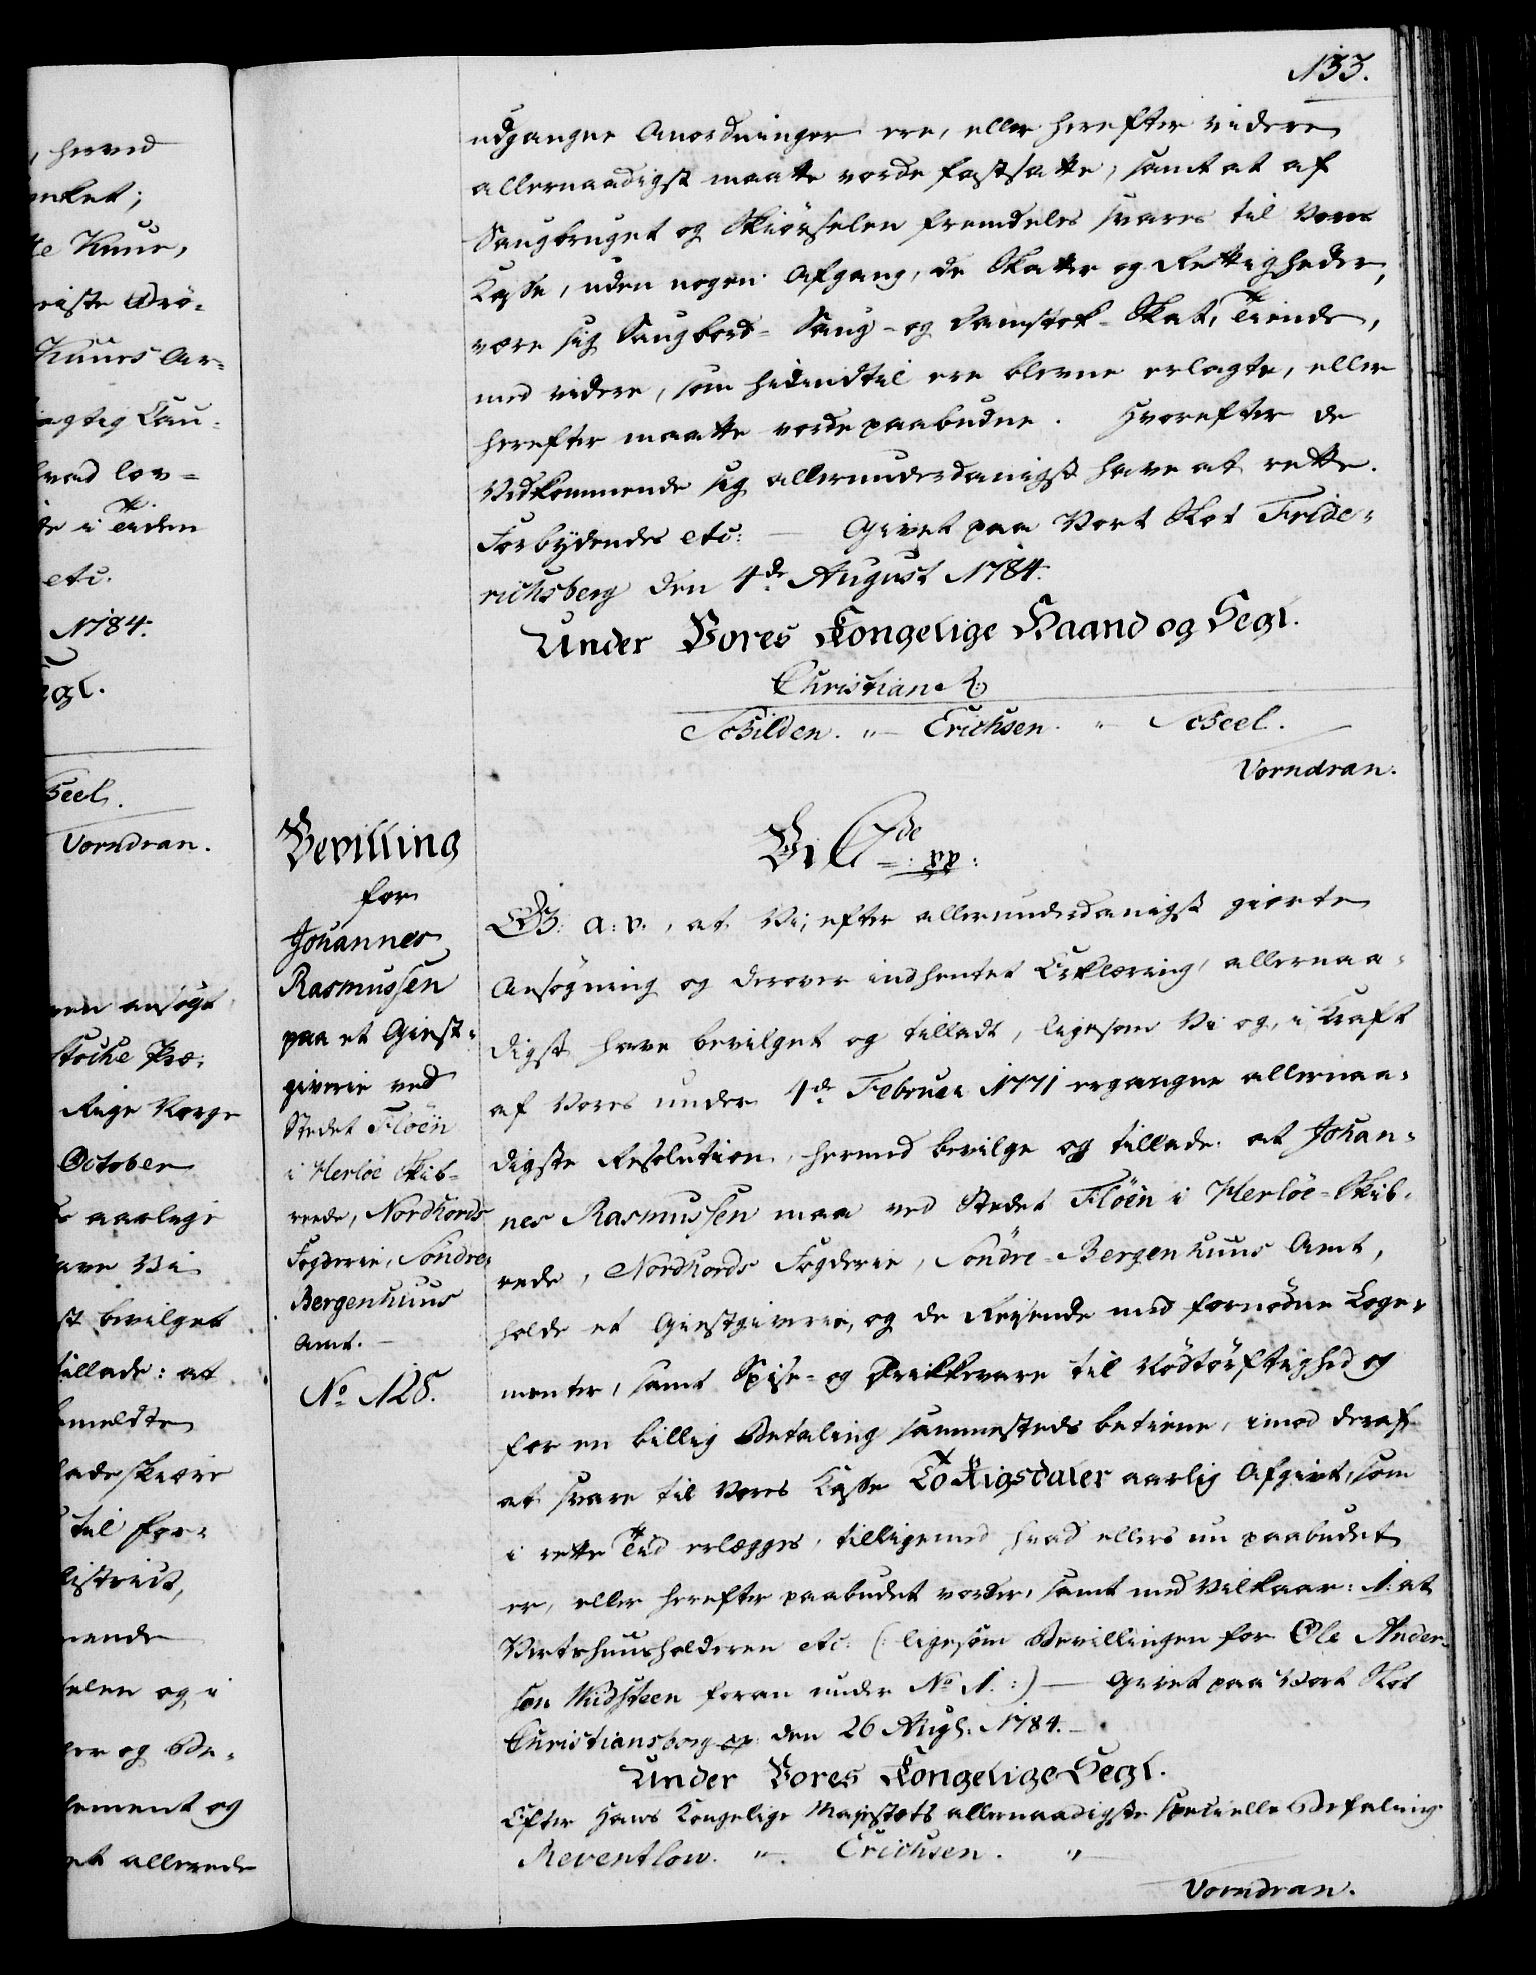 133.
udgangne Anordninger ere, eller herefter videre
allernaadigst maatte vorde fastsatte, samt at af
Saugbruget og Skiörselen fremdeles svares til Vores
Kasse, uden nogen Afgang, de Skatter og Rettigheder,
være sig Saugbord- Saug- og Damstok-Skat, Tiende,
med videre, som hidindtil ere blevne erlagte, eller
herefter maatte vorde paabudne. Hvorefter de
Vedkommende sig allerunderdanigst have at rette.
Forbydendes etc: — Givet paa Vort Slot Fride-
richsberg den 4de August 1784.
Under Vores Kongelige Haand og Segl.
Christian R.
Schilden. „ Erichsen. „ Scheel.
Vorndran.
Bevilling
for
Johannes
Rasmussen
paa et Giest-
giverie ved
Stedet Flöen
i Herlöe Skib-
rede, Nordhords
Fogderie, Söndre
Bergenhuus
Amt. —
No 128.
Vi C 7de pp:
G: a: v., at Vi, efter allerunderdanigst giorte
Ansögning og derover indhentet Erklæring, allernaa-
digst have bevilget og tilladt, ligesom Vi og, i Kraft
af Vores under 4de Februar 1771 ergangne allernaa-
digste Resolution, hermed bevilge og tillade: at Johan-
nes Rasmussen maa ved Stedet Flöen i Herlöe-Skib-
rede, Nordhords Fogderie, Söndre-Bergenhuus Amt,
holde et Giestgiverie, og de Reisende med fornödne Loge-
menter, samt Spise- og Drikkevare til Nödtörftighed og
for en billig Betaling sammesteds betiene, imod deraf
at svare til Vores Kasse To Rigsdaler aarlig Afgivt, som
i rette Tid erlægges, tilligemed hvad ellers nu paabudet
er, eller herefter paabudet vorder, samt med Vilkaar: 1: at
Vertshuusholderen etc: (: ligesom Bevillingen for Ole Ander-
sen Midsteen foran under No 1. :) — Givet paa Vort Slot
Christiansborg den 26 Augs. 1784. —
Under Vores Kongelige Segl.
Efter Hans Kongelige Majestæts allernaadigste specielle Befaling
Reventlow. „ Erichsen. „
Vorndran.
, herved
te Kuur,
Kuurs Ar-
hvad lov-
de i Tiden
etc.
1784.
egl.
Scheel.
Vorndran.
en ansögt
Rige Norge
October
aarlige
have Vi
st bevilget
tillade: at
meldte
til for-
District,
selen og i
er og Be-
ement og
et allerede